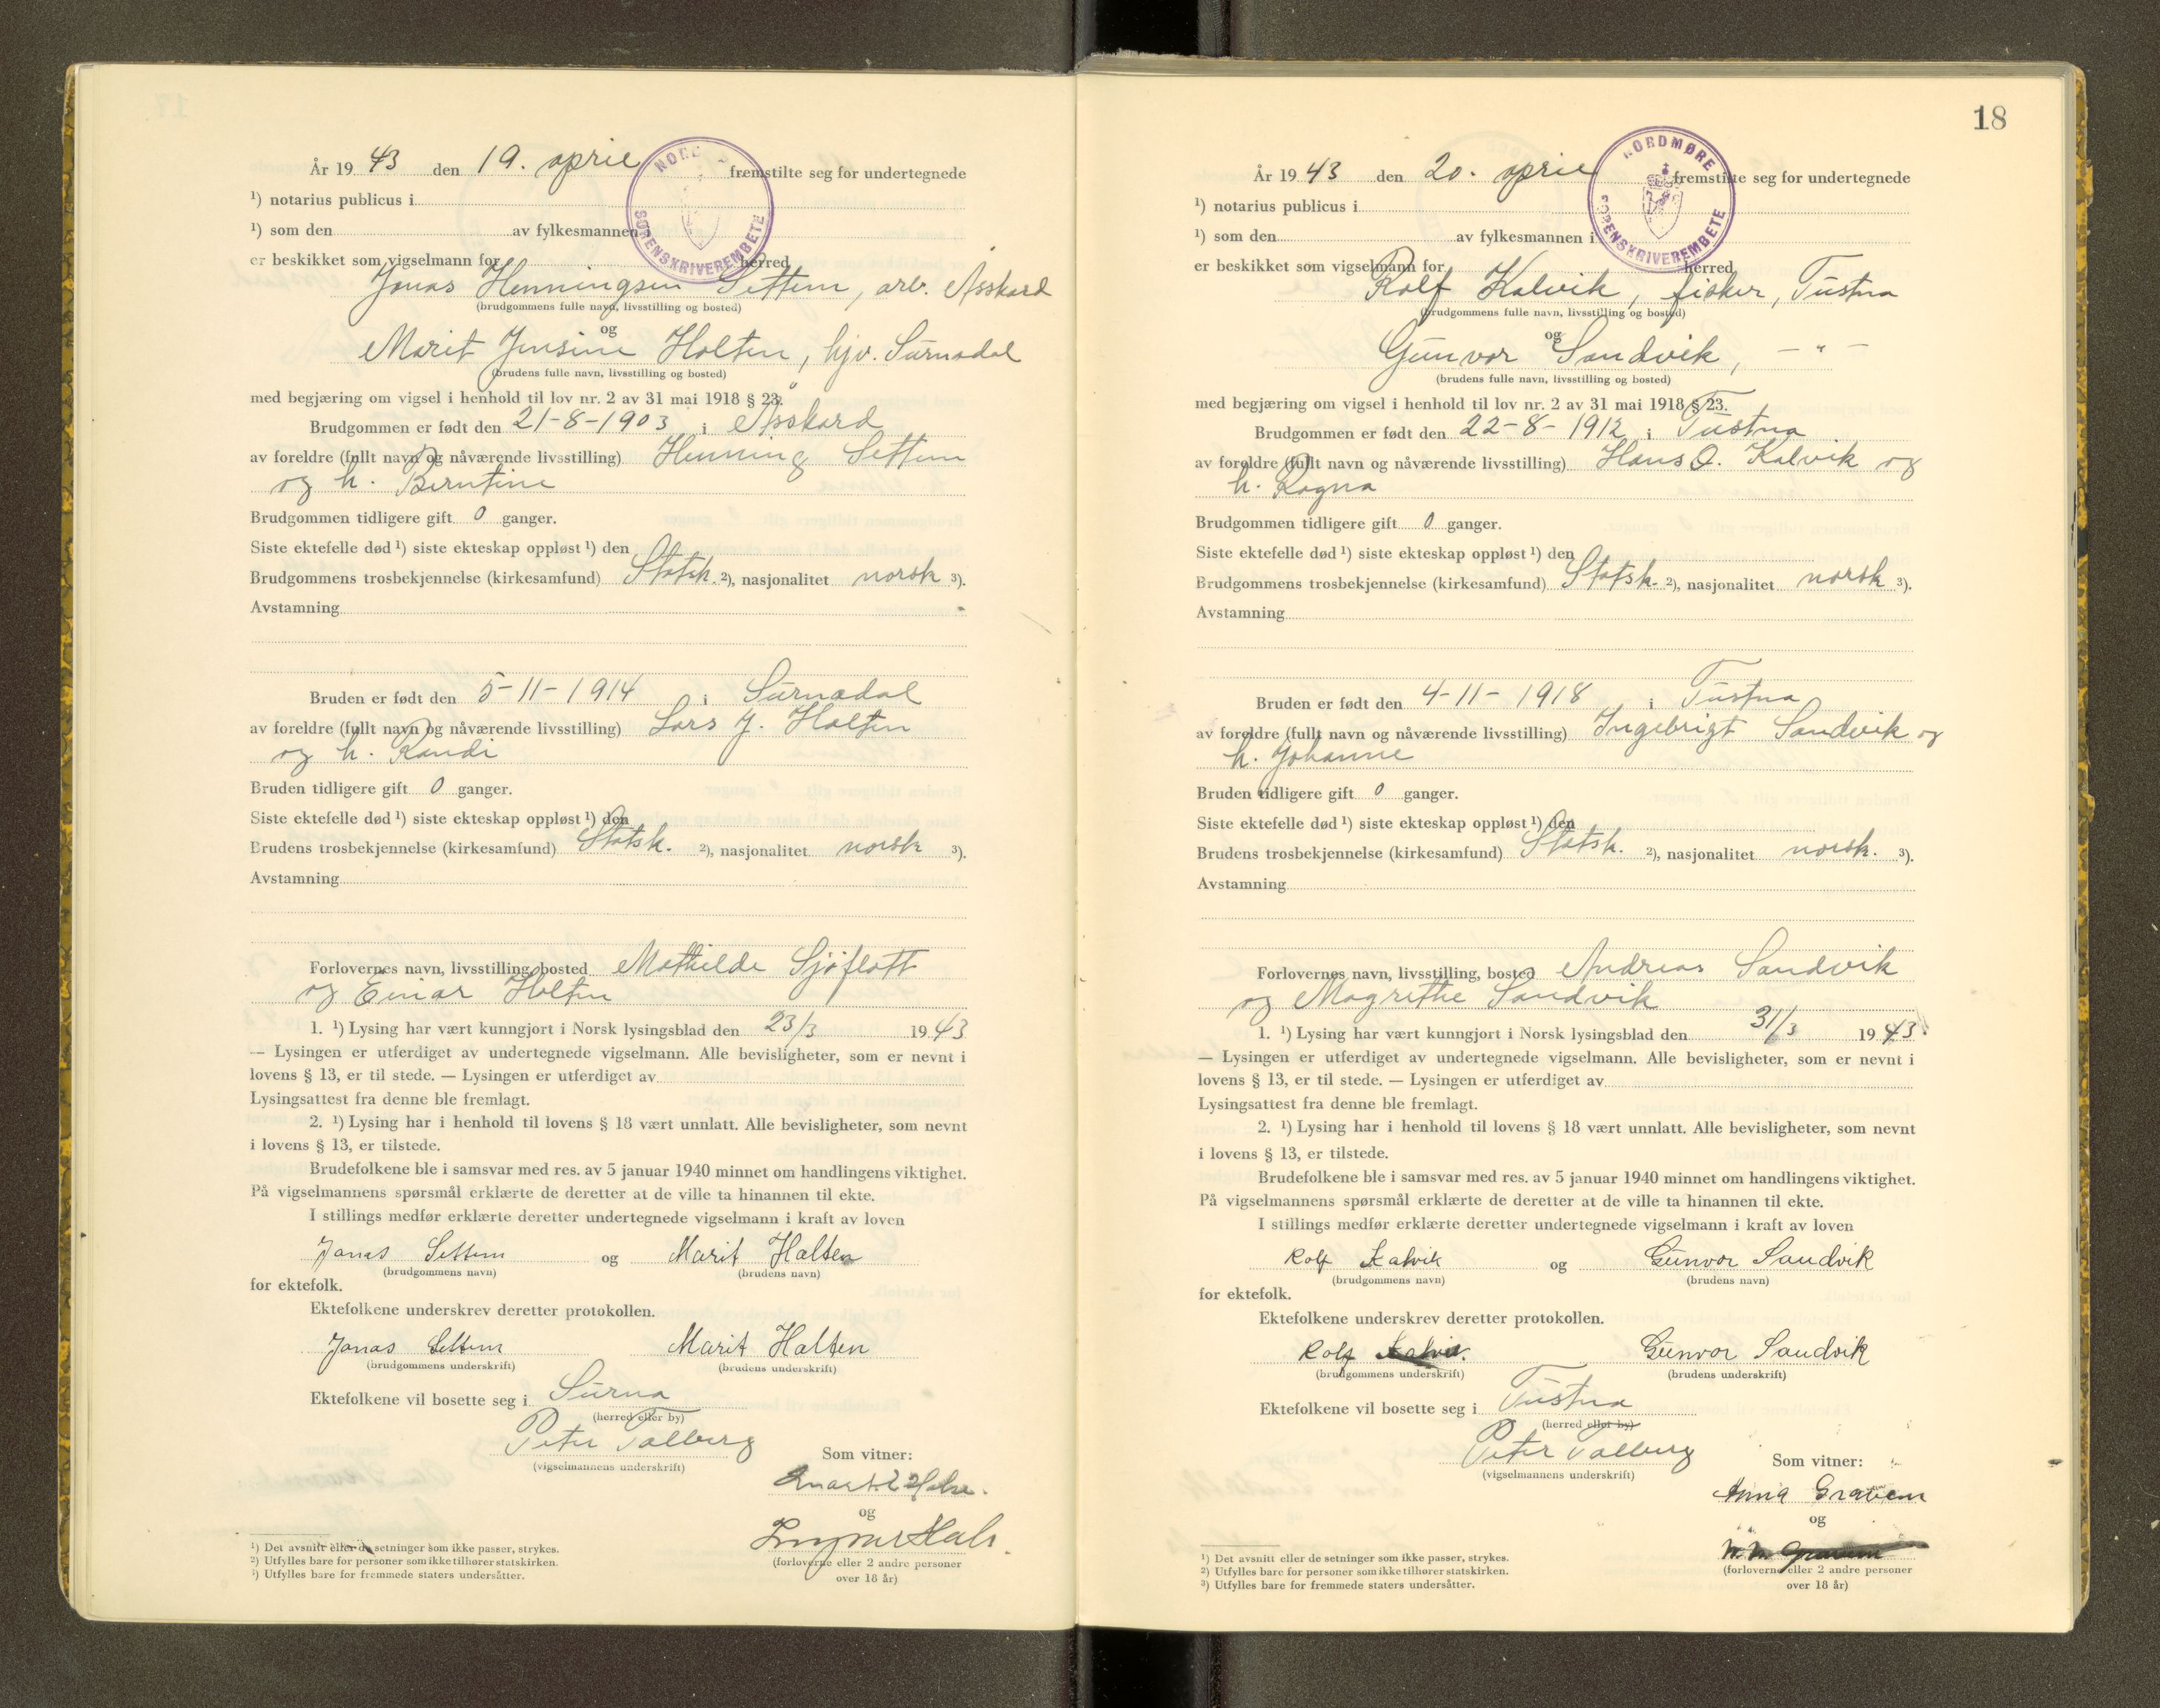 År 19 43 den 19. april fremstilte seg for undertegnede
¹) notarius publicus i
¹) som den av fylkesmannen
er beskikket som vigselmann for herred
NORD
SORENSKRIVEREMBETE
Jonas Henningsen Settem, arb. Åsskard
(brudgommens fulle navn, livsstilling og bosted)
og
Marit Jensine Holten, hjv. Surnadal
(brudens fulle navn, livsstilling og bosted)
med begjæring om vigsel i henhold til lov nr. 2 av 31 mai 1918 § 23.
Brudgommen er født den 21-8-1903 i Åsskard
av foreldre (fullt navn og nåværende livsstilling) Henning Settem
og h. Berntine
Brudgommen tidligere gift 0 ganger.
Siste ektefelle død ¹) siste ekteskap oppløst ¹) den
Brudgommens trosbekjennelse (kirkesamfund) Statsk. ²), nasjonalitet norsk ³).
Avstamning
Bruden er født den 5-11-1914 i Surnadal
av foreldre (fullt navn og nåværende livsstilling) Lars J. Holten
og h. Randi
Bruden tidligere gift 0 ganger.
Siste ektefelle død ¹) siste ekteskap oppløst ¹) den
Brudens trosbekjennelse (kirkesamfund) Statsk. ²), nasjonalitet norsk ³).
Avstamning
Forlovernes navn, livsstilling, bosted Mathilde Sjøflott
og Einar Holten
1. ¹) Lysing har vært kunngjort i Norsk lysingsblad den 23/3 19 43
— Lysingen er utferdiget av undertegnede vigselmann. Alle bevisligheter, som er nevnt i
lovens § 13, er til stede. — Lysingen er utferdiget av
Lysingsattest fra denne ble fremlagt.
2. ¹) Lysing har i henhold til lovens § 18 vært unnlatt. Alle bevisligheter, som nevnt
i lovens § 13, er tilstede.
Brudefolkene ble i samsvar med res. av 5 januar 1940 minnet om handlingens viktighet.
På vigselmannens spørsmål erklærte de deretter at de ville ta hinannen til ekte.
I stillings medfør erklærte deretter undertegnede vigselmann i kraft av loven
Jonas Settem og Marit Halten
(brudgommens navn) (brudens navn)
for ektefolk.
Ektefolkene underskrev deretter protokollen.
Jonas Settem Marit Halten
(brudgommens underskrift) (brudens underskrift)
Ektefolkene vil bosette seg i Surna
(herred eller by)
Peter Talberg
(vigselmannens underskrift)
Som vitner:
og
(forloverne eller 2 andre personer
over 18 år)
¹) Det avsnitt eller de setninger som ikke passer, strykes.
²) Utfylles bare for personer som ikke tilhører statskirken.
³) Utfylles bare for fremmede staters undersåtter.
18
År 19 43 den 20. april fremstilte seg for undertegnede
¹) notarius publicus i
¹) som den av fylkesmannen i
er beskikket som vigselmann for herred
NORDMØRE
SORENSKRIVEREMBETE
Rolf Kalvik, fisker, Tustna
(brudgommens fulle navn, livsstilling og bosted)
og
Gunvor Sandvik, — " —
(brudens fulle navn, livsstilling og bosted)
med begjæring om vigsel i henhold til lov nr. 2 av 31 mai 1918 § 23.
Brudgommen er født den 22-8-1912 i Tustna
av foreldre (fullt navn og nåværende livsstilling) Hans O. Kalvik og
h. Ragna
Brudgommen tidligere gift 0 ganger.
Siste ektefelle død ¹) siste ekteskap oppløst ¹) den
Brudgommens trosbekjennelse (kirkesamfund) Statsk. ²), nasjonalitet norsk ³).
Avstamning
Bruden er født den 4-11-1918 i Tustna
av foreldre (fullt navn og nåværende livsstilling) Ingebrigt Sandvik og
h. Johanne
Bruden tidligere gift 0 ganger.
Siste ektefelle død ¹) siste ekteskap oppløst ¹) den
Brudens trosbekjennelse (kirkesamfund) Statsk. ²), nasjonalitet norsk. ³).
Avstamning
Forlovernes navn, livsstilling, bosted Andreas Sandvik
og Magrethe Sandvik
1. ¹) Lysing har vært kunngjort i Norsk lysingsblad den 31/3 19 43.
— Lysingen er utferdiget av undertegnede vigselmann. Alle bevisligheter, som er nevnt i
lovens § 13, er til stede. — Lysingen er utferdiget av
Lysingsattest fra denne ble fremlagt.
2. ¹) Lysing har i henhold til lovens § 18 vært unnlatt. Alle bevisligheter, som nevnt
i lovens § 13, er tilstede.
Brudefolkene ble i samsvar med res. av 5 januar 1940 minnet om handlingens viktighet.
På vigselmannens spørsmål erklærte de deretter at de ville ta hinannen til ekte.
I stillings medfør erklærte deretter undertegnede vigselmann i kraft av loven
Rolf Kalvik og Gunvor Sandvik
(brudgommens navn) (brudens navn)
for ektefolk.
Ektefolkene underskrev deretter protokollen.
Rolf Kalvik. Gunvor Sandvik
(brudgommens underskrift) (brudens underskrift)
Ektefolkene vil bosette seg i Tustna
(herred eller by)
Peter Talberg
(vigselmannens underskrift)
Som vitner:
Anna Gravem
og
Gravem
(forloverne eller 2 andre personer
over 18 år)
¹) Det avsnitt eller de setninger som ikke passer, strykes.
²) Utfylles bare for personer som ikke tilhører statskirken.
³) Utfylles bare for fremmede staters undersåtter.